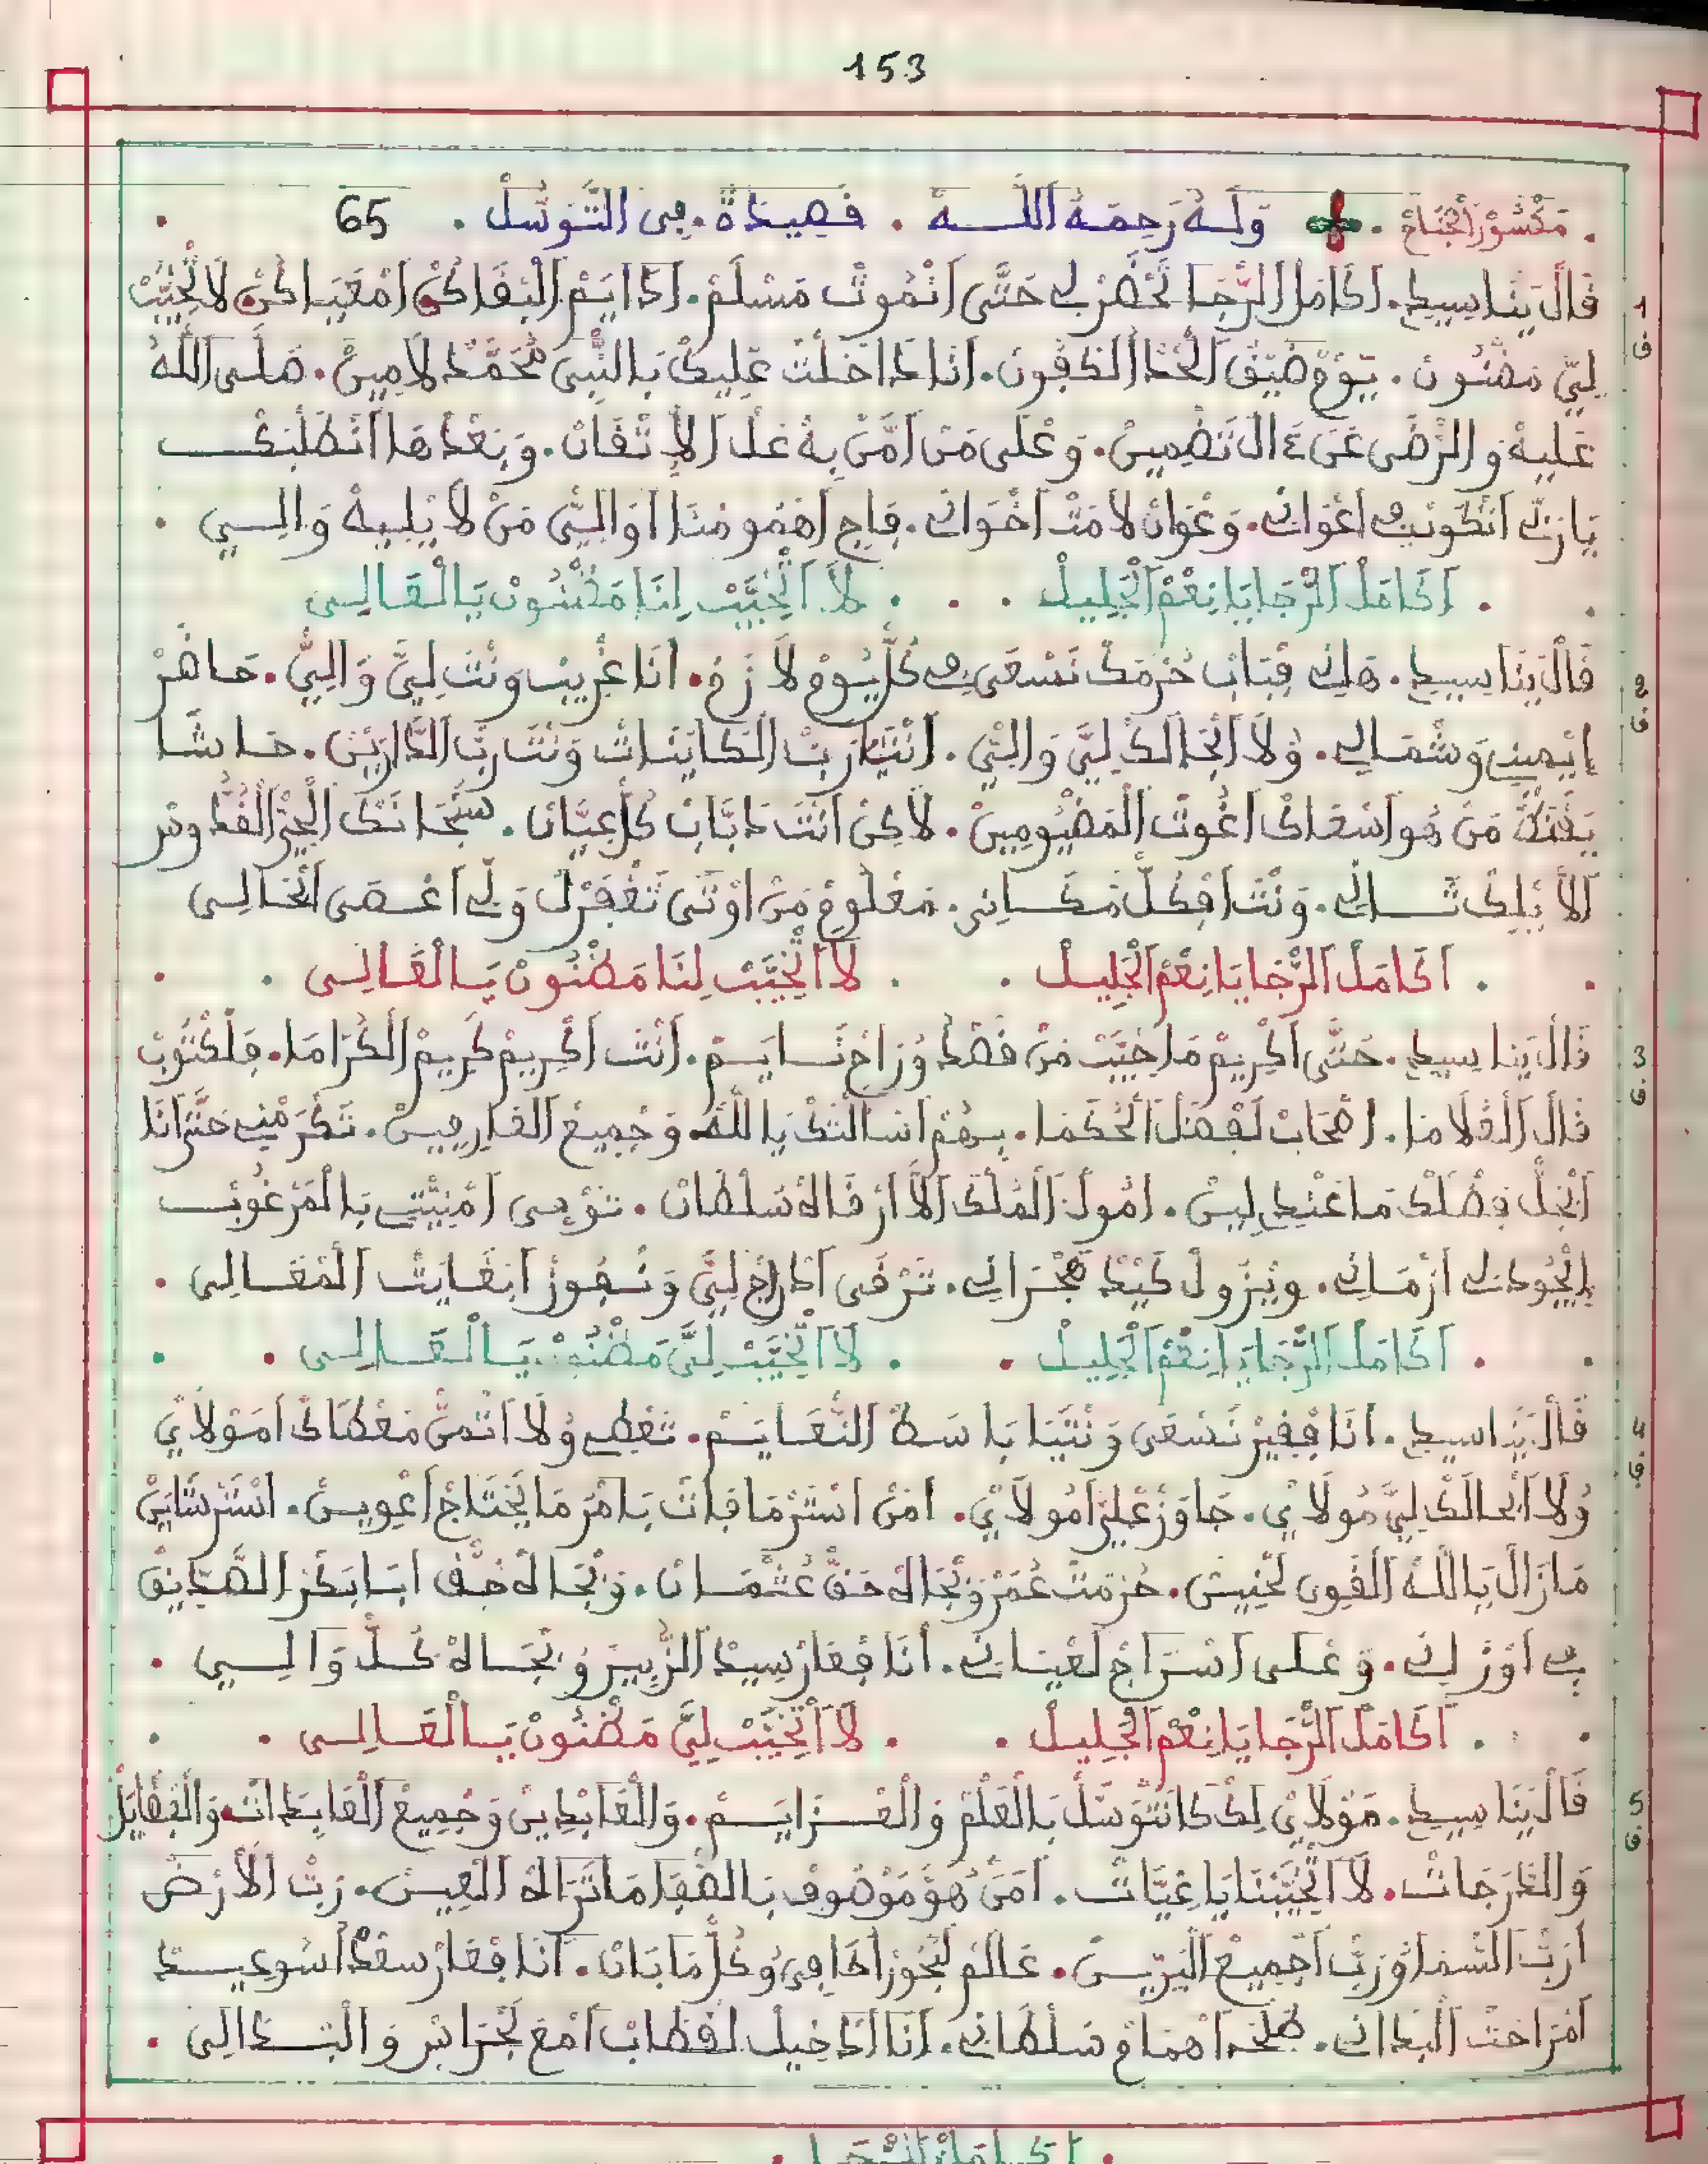 153
مَكْسُورْ اَلْجْنَاحْ . وَلَـهُ رَحِمَهُ اَللَّـهُ . قصِيدَةٌ . فِى التَّوَسُّلْ . 65
1 قَالْ يَنَا سِيدِ . اَكَامَلْ اَلرّْجَا تَحْضَرْ لِى حَتَّى اَنْمُوتْ مَسْلَمْ . اَدَايَمْ اَلْبْقَا كُنْ اَمْعَيَا كُنْ لَاتْخَيَّبْ
ف لِيَّ مَضْنُونْ . يَوْمْ ضِيقْ اَلْحْدْ اَلْكفُونْ . اَنَا دَاخَلْتْ عْلِيكْ بَالنّْبِىَ مُحَمَّدْ لَامِينْ . صَلَّى اَللَّهُ
عَلَيهْ وَالرّْضَى عَنْ ءَالْ تَضْمِينْ . وَعْلَى مَنْ اَمَّنْ بِهْ عَلْ اَلإِتْقَانْ . وَبَعْدْهَا اَنْطَلْبَكْ
يَارَبِّى اَتْكُونْ فِى اَعْوَانِى . وَعْوَانْ لَامَتْ اَخْوَانِى . فَاجِى اَهْمُومْنَا اَوَالِىّ مَنْ لَا يْلِيهْ وَالِـي .
. اَكَامَلْ اَلرّْجَا يَا نِعْمْ اَلْجْلِيلْ . . . لَا اَتْخَيَّبْ لِنَا مَضْنُونْ يَـالْعَـالِـى
2 قَالْ يَنَا سِيدِ . هَانِى فْبَابْ حُرْمَكْ نَسْعَى فِى كُلّْ يُومْ لَازَمْ . اَنَا غْرِيبْ وَنْتَ لِيَّ وَالِيّْ . حَاضَرْ
ف اِيْمِينِى وَشْمَـالِي . وُلَا اَبْحَالَكْ لِيَّ وَالِيّْ . اَنْتَيَا رَبّْ اَلْكَايَنَـاتْ وَنْتَ رَبّْ اَلدَّارَيْنْ . حَـاشَـا
يَقْنَطْ مَنْ هُو اَسْعَاكْ اَغُوتْ اَلْمَضْيُومِينْ . لَاكِنْ اَنْتَ دَبَّابْ كُلّْ عِيَّانْ . سُبْحَانَكْ اَلْحَيّْ اَلْقُدُّوسْ
اَلَا يْلِكْ ثَـانِى . وَنْتَ اَفْكُلّْ مْكَـانِى . مَعْلُومْ مَنْ اَوْتَى تَغْفَرْ لُ وَلِّى اَعْـصَى اَلْخَـالِـى
. اَكَامَلْ اَلرّْجَا يَا نِعْمْ اَلْجْلِيلْ . . لَا اَتْخَيَّبْ لِنَا مَضْنُونْ يَـالْعَـالِـى .
3 قَالْ يَنَا سِيدِ . حَتَّى اَكْرِيمْ مَا خَيَّبْ مَنْ قَصْدُ وْرَاحْ شَـايَـمْ . اَنْتَ اَكْرِيمْ كْرِيمْ اَلْكُرَامَا . فَلْكْتُوبْ
ف قَالْ اَلْعُلَامَا . اَصْحَابْ لَفْضَلْ اَلْحُكَمَا . بِهُمْ اَنْسَالْتَكْ يَا للَّهْ وَجْمِيعْ اَلْعَارِفِينْ . تَكْرَمْنِى حَتَّى اَنَا
اَنْجَلّْ فَضْلَكْ مَا عَنْدِ لِينْ . اَمُولْ اَلْمُلْكْ اَلَا اَرْقَاهْ سُلْطَانْ . تَوْفِى اَمْنِيّْتِى بَالْمَرْغُوبْ
اِيْجُودْ لِى اَزْمَانِى . وِيْزُولْ كَيْدْ هَجْرَانِى . تَرْقَى اَدْرَاجْ لِيَّ وَنْفُوزْ اَبْغَايَتْ اَلْمْعَـالِى .
. اَكَامَلْ اَلرّْجَا يَا نِعْمْ اَلْجْلِيلْ . . لَا اَتْخَيَّبْ لِيَّ مَضْنُونْ يَـالْعَـالِـى .
4 قَالْ يَنَا سِيدِ . اَنَا فْقِيرْ نَسْعَى وَنْتَيَا بَاسَطْ اَلنّْعَـايَـمْ . تَعْطِى وُلَا اَتْمَنّْ مَعْطَاكْ اَمَوْلَايْ
ف وُلَا اَبْحَالَكْ لِيَّ مُولَايْ . جَاوَزْ عْلِيَّ اَمُولَايْ . اَمَنْ اَسْتَرْ مَا فَاتْ بَامْرْ مَا يَحْتَاجْ اَعْوِينْ . اَسْتَرْ شَايَنْ
مَازَالْ يَاللَّهْ اَلْقْوِى لَحْنِينْ . حُرْمَتْ عُمَرْ وَبْجَاهْ حَقّْ عُثْمَـانْ . وَبْجَاهْ حَقّْ اَبَا بَكْرْ الصَّدِّيقْ
بِى اَوْزْ لِى . وَعْلَى اَسْرَاجْ لَعْيَـانِى . اَنَا فْعَارْ سِيدْ اَلزُّبِيرْ وُبْجَـاهْ كُـلّْ وَالِـي .
. اَكَامَلْ اَلرّْجَا يَا نِعْمْ اَلْجْلِيلْ . . لَا اَتْخَيَّبْ لِيَّ مَضْنُونْ يَـالْعَـالِـى .
5 قَالْ يَنَا سِيدِ . مَوْلَايْ لِكْ كَانَتْوَسَّلْ بَالْعَلْمْ وَالْعْـزَايَـمْ . وَالْعَابْدِينْ وَجْمِيعْ اَلْعَابِدَاتْ وَالْفْضَايَلْ
ف وَالدَّرَجَاتْ . لَا اَتْخَيَّبْنَا يَا غِيَّاتْ . اَمَنْ هُوَّ مَوْصُوفْ بَالصّْفَا مَا تْرَاهْ اَلْعِينْ . رَبّْ اَلْأَرْضْ
اَرَبّْ اَلسّْمَا وْرَبّْ اَجْمِيعْ اَلْبَرِّيـنْ . عَالَمْ لَجُوزْ اَخَافِى وُكُلّْ مَا بَانْ . اَنَا فْعَارْ سَعْدْ اَسُوعِيـدْ
اَمْرَاحَتْ اَلْبْدَانِى . طَلْحَـ اَهْمَامْ سَلْطَانِى . اَنَا اَدْخِيلْ لَقْطَابْ اَمْعَ لَجْرَاسْ وَالْبْـدَالِى .
. اَكَـامَلْ اَلرّْجَـا .